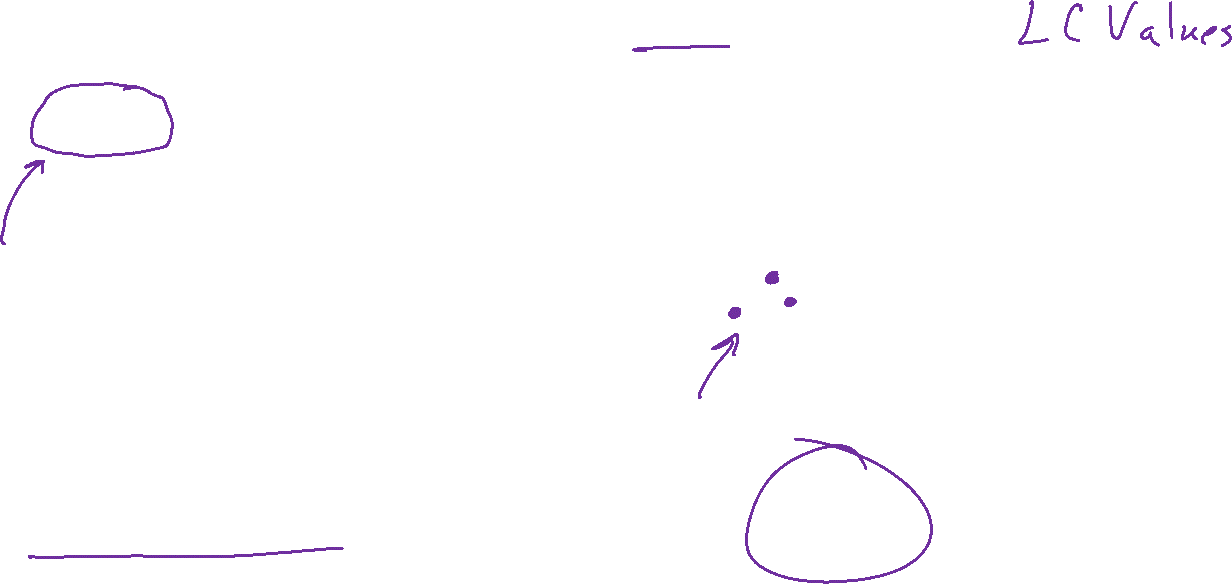 LC Values